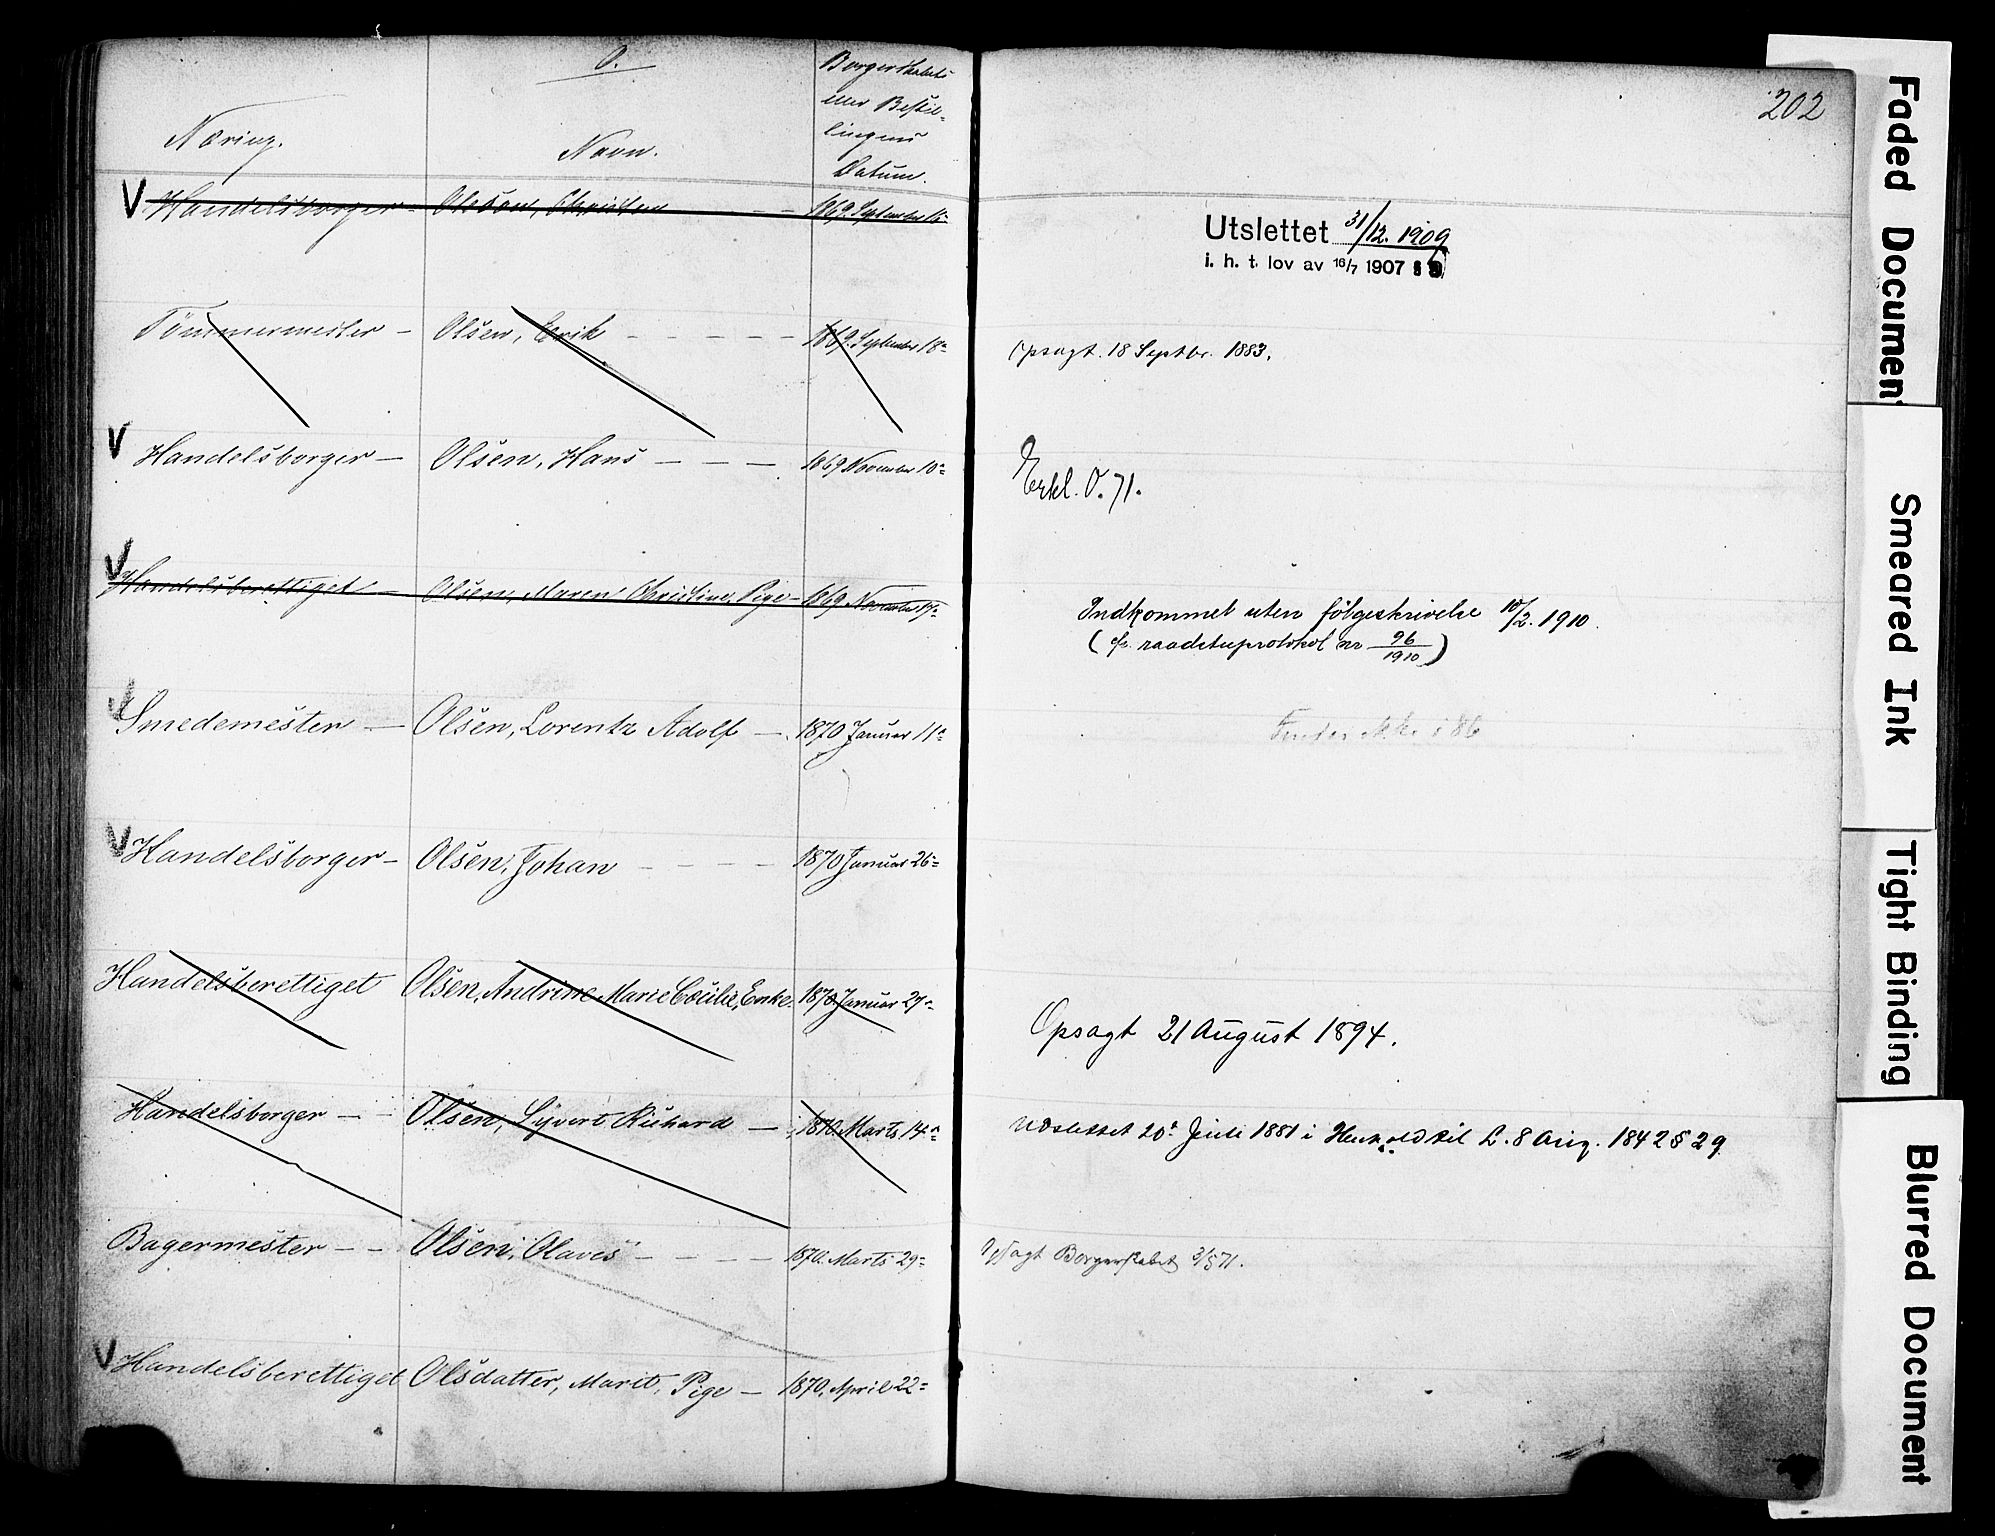 O.
Næring.
Navn.
Borgerskabets
eller Bestil-
lingens
Datum.
202
V Handelsborger - Olsson, Christen - - 1869 September 15=
Utslettet 31/12. 1909
i. h. t. lov av 16/7 1907 § 9
Tömmermester - Olsen, Erik - - - - - 1869. September 18=
Opsagt. 18 Septbr. 1883.
V Handelsborger - Olsen, Hans - - - 1869 November 10=
Erkl. O. 71.
V Handelsberettiget - Olsen, Maren Christine, Pige - 1869 November 17=
Indkommet uten fölgeskrivelse 10/2. 1910.
(cfr. raadstueprotokol nr 96/1910)
V Smedemester - Olsen, Lorentz Adolf - 1870 Januar 11=
Findes ikke i 86
V Handelsborger - Olsen, Johan - - - - 1870 Januar 26=
Handelsberettiget Olsen, Andrine Marie Cecilie, Enke. 1870 Januar 27=
Opsagt 21 August 1894.
Handelsborger - - Olsen, Syvert Richard - 1870. Marts 14=
Udslettet 20= Juli 1881 i Henhold til L. 8 Aug. 1842 § 29
Bagermester - - Olsen, Olaves - - - - 1870. Marts 29=
Opsagt Borgerskabet 3/5 71.
V Handelsberettiget Olsdatter, Marit, Pige - 1870. April 22=
Faded Document
Smeared Ink
Tight Binding
Blurred Document